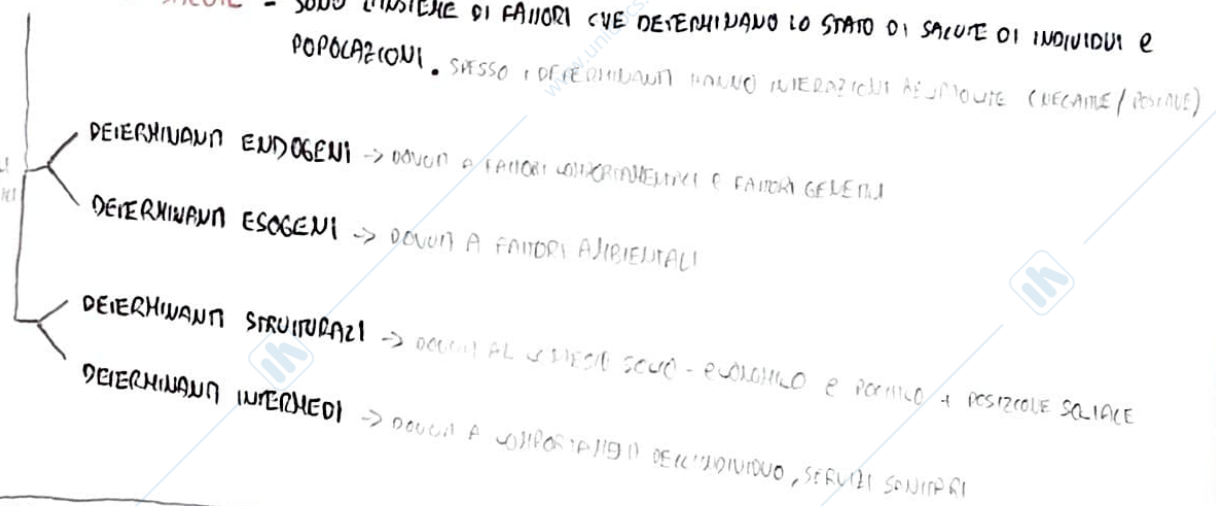 SALUTE = SONO L'INSIEME DI FATTORI CHE DETERMINANO LO STATO DI SALUTE DI INDIVIDUI e
POPOLAZIONI. SPESSO I DETERMINANTI HANNO INTERAZIONI (NEGATIVE / POSITIVE)
DETERMINANTI ENDOGENI -> DOVUTI A FATTORI COMPORTAMENTALI E FATTORI GENETICI
DETERMINANTI ESOGENI -> DOVUTI A FATTORI AMBIENTALI
DETERMINANTI STRUTTURALI -> DOVUTI AL CONTESTO SOCIO - ECONOMICO E POLITICO + POSIZIONE SOCIALE
DETERMINANTI INTERMEDI -> DOVUTI A COMPORTAMENTI DELL'INDIVIDUO, SERVIZI SANITARI